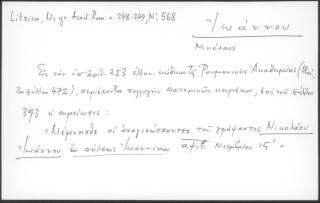 Litzica, Ms gr. Acad. Rom. σ. 248-249, Nº 568
Ἰωάννου
Νικόλαος
Εἰς τὸν ὑπ' ἀριθ. 253 ἑλλην. κώδικα τῆς Ρουμανικῆς Ἀκαδημίας
φύλλα 472), περιέχοντα συλλογὴν πατερικῶν κειμένων, ἐπὶ τοῦ φύλλου
393 ἡ σημείωσις:
«Μέμνησθε οἱ ἀναγινώσκοντες τοῦ γράψαντος Νικολάου
Ἰωάννου ἐκ πόλεως Ἰωαννίνων Νοεμβρίου ιζ'».